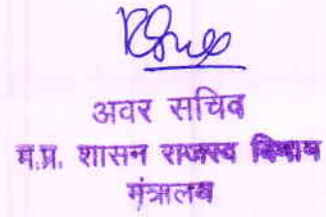 अवर सचिव
म.प्र. शासन राजस्व विभाग
मंत्रालय